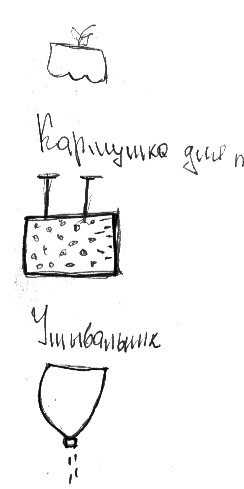 Кармушка для п
Умывальник